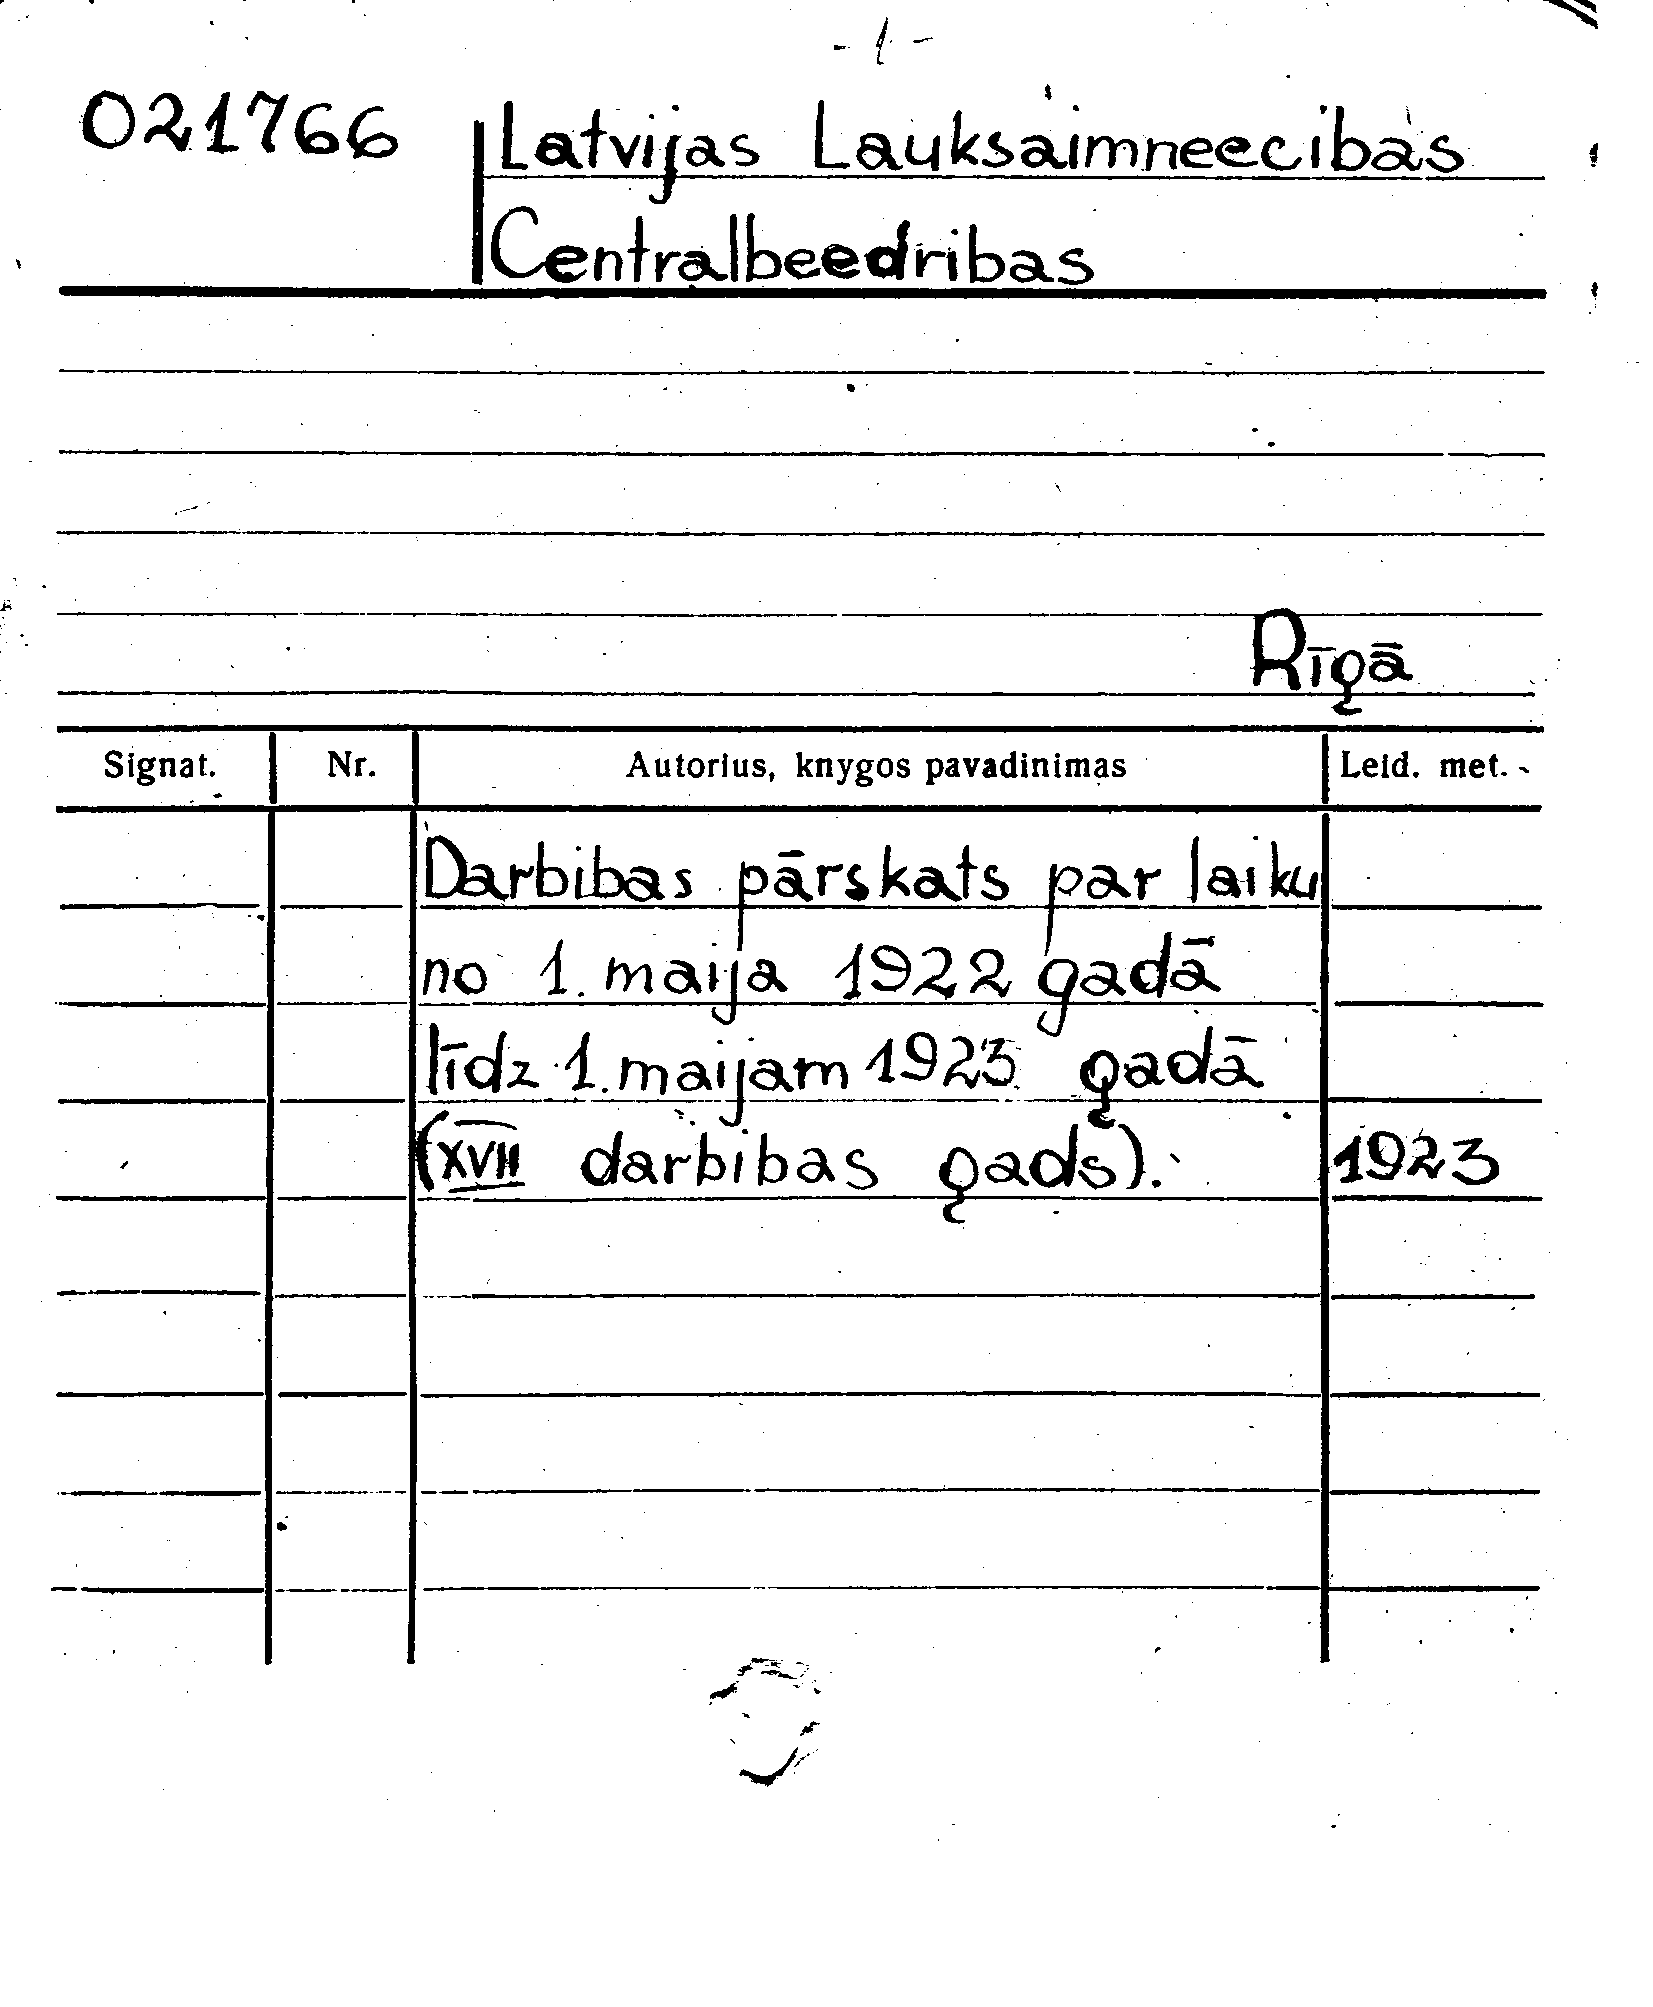 - 1 -
021766 Latvijas Lauksaimneecibas
Centralbeedribas
Rīgā
Signat. Nr. Autorius, knygos pavadinimas Leid. met.
Darbibas pārskats par laiku
no 1. maija 1922 gadā
līdz 1. maijam 1923 gadā
(XVII darbibas gads). 1923